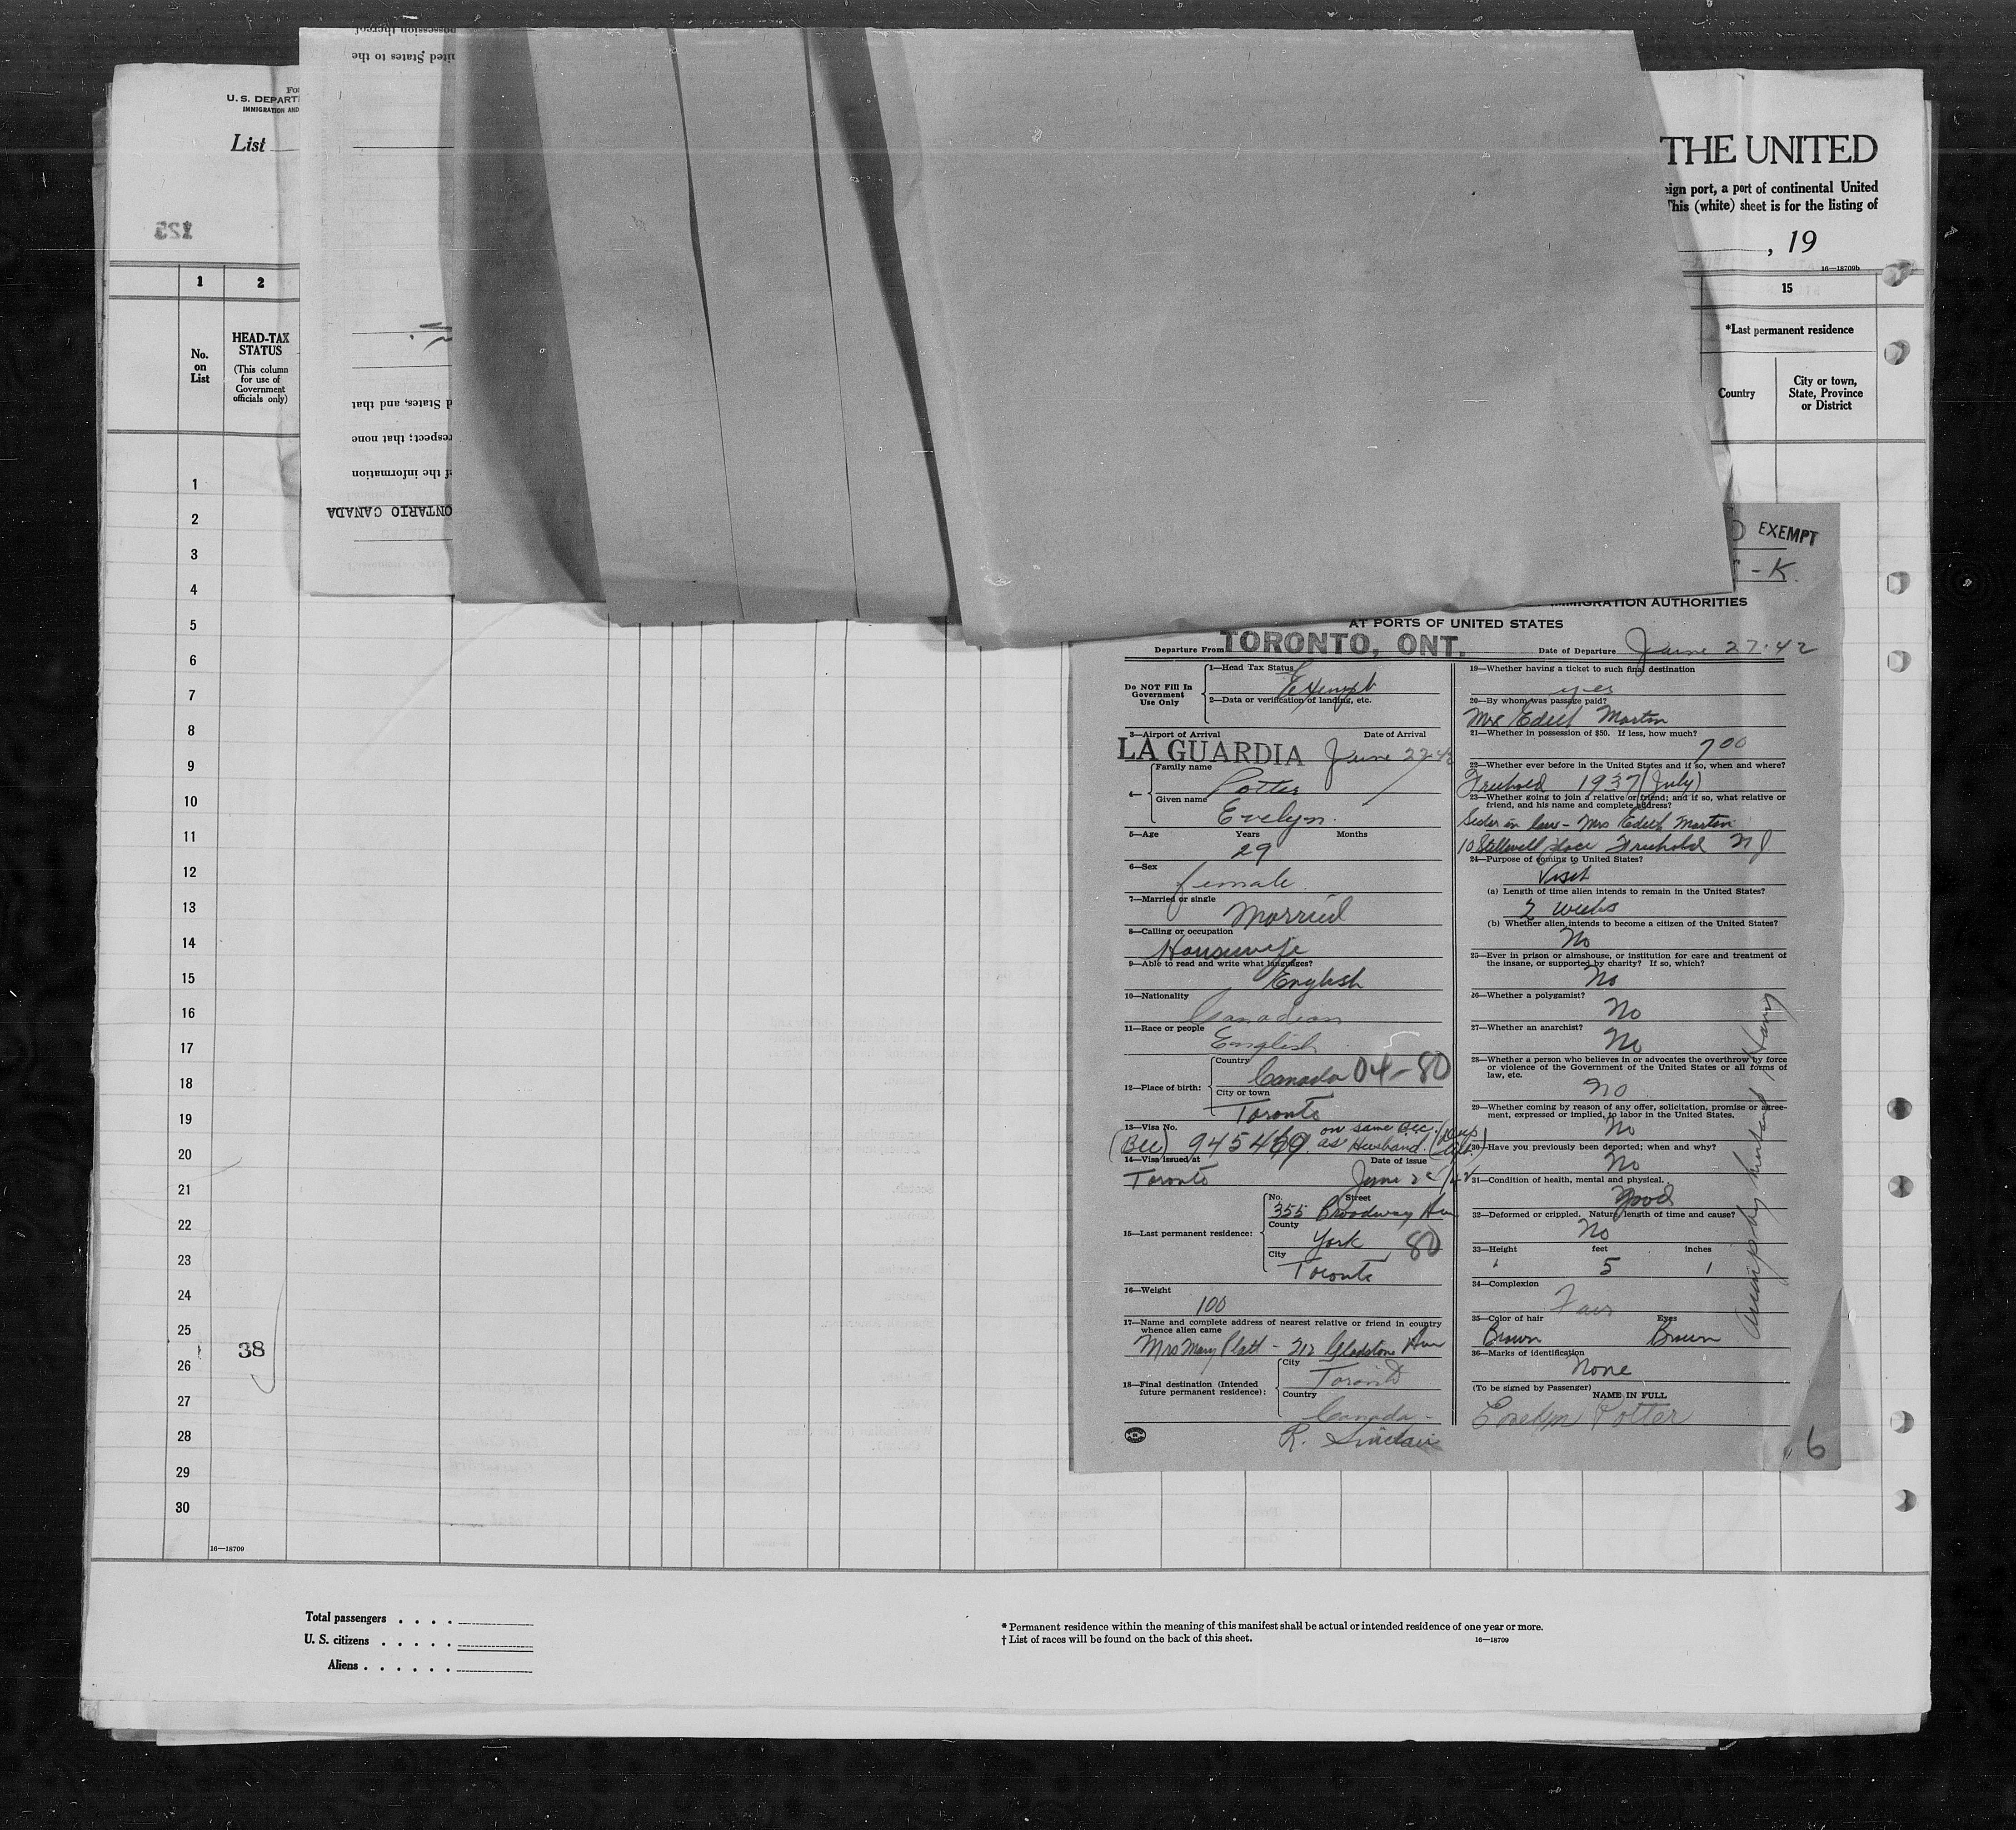 U. S. DEPART
IMMIGRATION AND
List
123
ession thereof
ited States to the
d States, and that
respect; that none
f the information
ONTARIO CANADA
THE UNITED
eign port, a port of continental United
This (white) sheet is for the listing of
, 19
16—18709b
1
2
15
No. on List
HEAD-TAX STATUS
(This column for use of Government officials only)
*Last permanent residence
Country
City or town, State, Province or District
1
2
3
4
5
6
7
8
9
10
11
12
13
14
15
16
17
18
19
20
21
22
23
24
25
38
26
27
28
29
30
16—18709
EXEMPT
- K.
IMMIGRATION AUTHORITIES
AT PORTS OF UNITED STATES
Departure From TORONTO, ONT.
Date of Departure June 27·42
Do NOT Fill In Government Use Only
1—Head Tax Status
Exempt
2—Data or verification of landing, etc.
3—Airport of Arrival Date of Arrival
LA GUARDIA June 27-42
4—
Family name
Potter
Given name
Evelyn.
5—Age Years Months
29
6—Sex
female
7—Married or single
Married
8—Calling or occupation
Housewife
9—Able to read and write what languages?
English
10—Nationality
Canadian
11—Race or people
English
12—Place of birth:
Country
Canada 04-80
City or town
Toronto
13—Visa No. on same Bcc.
(Bcc) 945469. as Husband.
14—Visa issued at Date of issue
Toronto June
15—Last permanent residence:
No. Street
355 Broadway Ave
County
York , 80
City
Toronto
16—Weight
100
17—Name and complete address of nearest relative or friend in country
whence alien came
Mrs Mary Platt - 212 Gladstone Ave
18—Final destination (Intended future permanent residence):
City
Toronto
Country
Canada -
R. Sinclair
19—Whether having a ticket to such final destination
yes
20—By whom was passage paid?
Mrs Edith Martin
21—Whether in possession of $50. If less, how much?
700
22—Whether ever before in the United States and if so, when and where?
Freehold 1937 (July)
23—Whether going to join a relative or friend; and if so, what relative or
friend, and his name and complete address?
Sister in law - Mrs Edith Martin
10 Stillwell place Freehold NJ
24—Purpose of coming to United States?
Visit
(a) Length of time alien intends to remain in the United States?
2 weeks
(b) Whether alien intends to become a citizen of the United States?
No
25—Ever in prison or almshouse, or institution for care and treatment of
the insane, or supported by charity? If so, which?
No
26—Whether a polygamist?
No
27—Whether an anarchist?
No
28—Whether a person who believes in or advocates the overthrow by force
or violence of the Government of the United States or all forms of
law, etc.
No
29—Whether coming by reason of any offer, solicitation, promise or agree-
ment, expressed or implied, to labor in the United States.
No
30—Have you previously been deported; when and why?
No
31—Condition of health, mental and physical.
Good
32—Deformed or crippled. Nature, length of time and cause?
No
33—Height feet inches
5 1
34—Complexion
Fair
35—Color of hair Eyes
Brown Brown
36—Marks of identification
None
(To be signed by Passenger) NAME IN FULL
Evelyn Potter
accomp by husband Harry
6
Total passengers . . . .
U. S. citizens . . . . .
Aliens . . . . . .
* Permanent residence within the meaning of this manifest shall be actual or intended residence of one year or more.
† List of races will be found on the back of this sheet.
16—18709